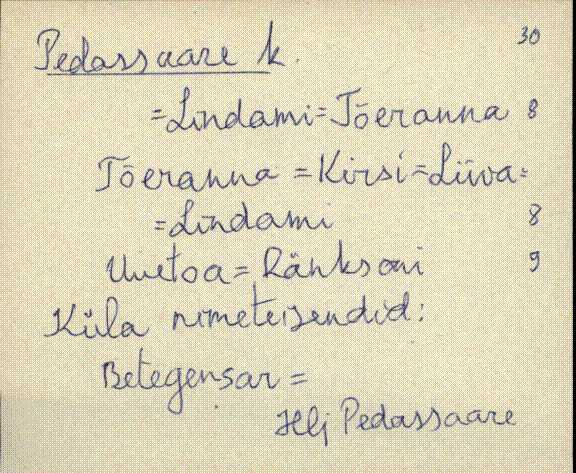 Pedassaare k. 30
=Lindami=Tõeranna 8
Tõeranna =Kirsi=Liiva=
=Lindami 8
Uuetoa= Ränksoni 9
Küla nimeteisendid:
Betegensar =
Hlj Pedassaare